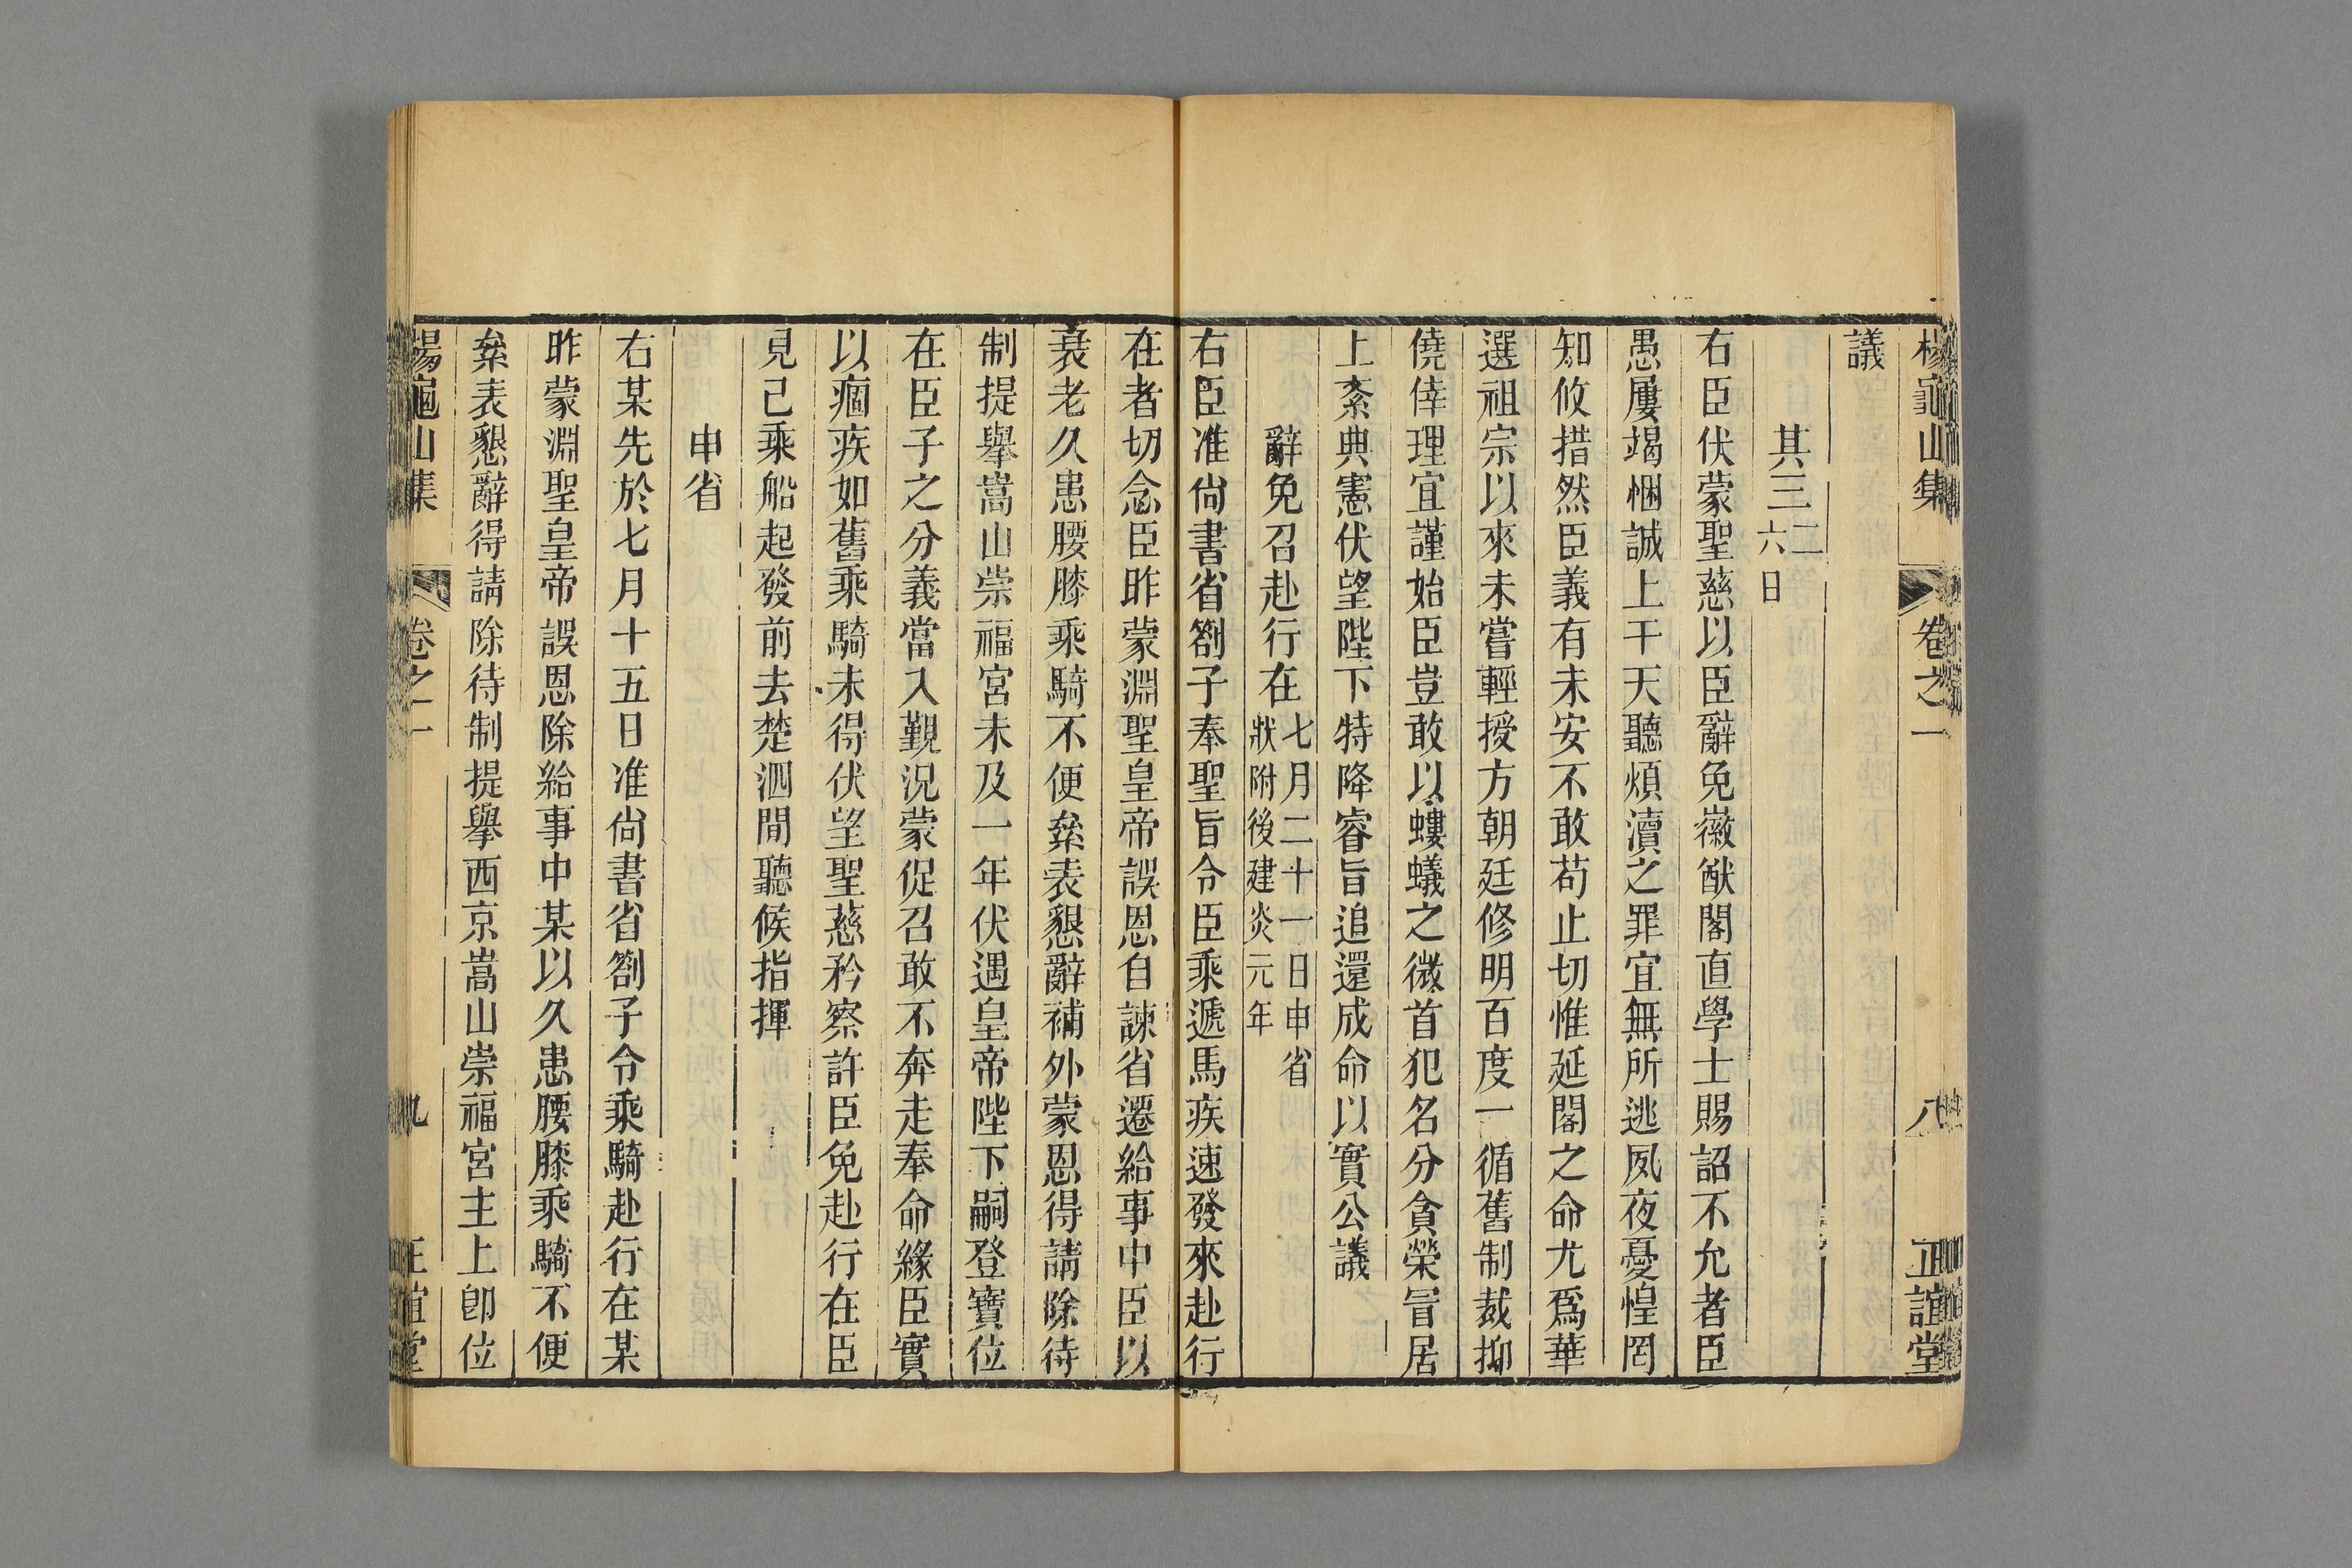 楊龜山集 卷之一 八 正誼堂
議
其三二六日
右臣伏蒙聖慈以臣辭免徽猷閣直學士賜詔不允者臣
愚屢竭悃誠上干天聽煩瀆之罪宜無所逃夙夜憂惶罔
知攸措然臣義有未安不敢苟止切惟延閣之命尤爲華
選祖宗以來未嘗輕授方朝廷修明百度一循舊制裁抑
僥倖理宜謹始臣豈敢以螻蟻之微首犯名分貪榮冒居
上紊典憲伏望陛下特降睿旨追還成命以實公議
辭免召赴行在七月二十一日申省狀附後建炎元年
右臣准尙書省劄子奉聖旨令臣乘遞馬疾速發來赴行
在者切念臣昨蒙淵聖皇帝誤恩自諫省遷給事中臣以
衰老久患腰膝乘騎不便絫表懇辭補外蒙恩得請除待
制提舉嵩山崇福宮未及一年伏遇皇帝陛下嗣登寶位
在臣子之分義當入覲況蒙促召敢不奔走奉命緣臣實
以痼疾如舊乘騎未得伏望聖慈矜察許臣免赴行在臣
見已乘船起發前去楚泗間聽候指揮
申省
右某先於七月十五日准尙書省劄子令乘騎赴行在某
昨蒙淵聖皇帝誤恩除給事中某以久患腰膝乘騎不便
絫表懇辭得請除待制提舉西京嵩山崇福宮主上卽位
楊龜山集 卷之一 九 正誼堂